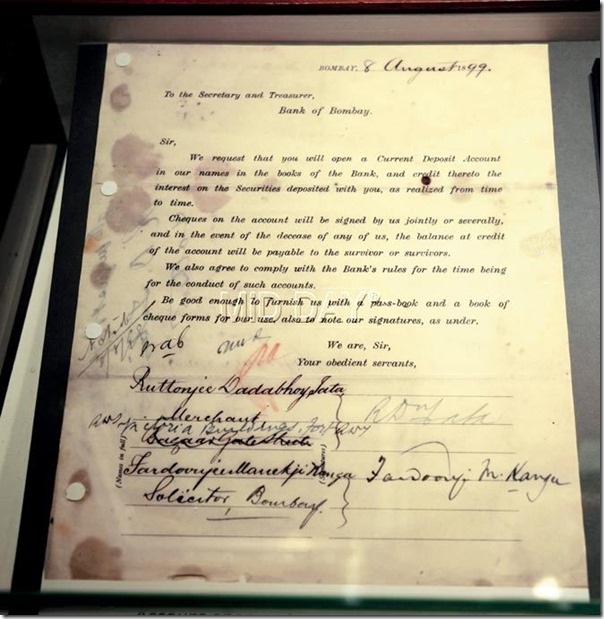 BOMBAY, 8 August 1899.
To the Secretary and Treasurer,
Bank of Bombay.
Sir,
We request that you will open a Current Deposit Account
in our names in the books of the Bank, and credit thereto the
interest on the Securities deposited with you, as realized from time
to time.
Cheques on the account will be signed by us jointly or severally,
and in the event of the decease of any of us, the balance at credit
of the account will be payable to the survivor or survivors.
We also agree to comply with the Bank's rules for the time being
for the conduct of such accounts.
MID-DAY
Be good enough to furnish us with a pass-book and a book of
cheque forms for our use, also to note our signatures, as under.
We are, Sir,
Your obedient servants,
Ruttonjee Dadabhoy Tata
Merchant
Victoria Buildings, Fort
Bazaar Gate Street
(Names in full)
(Signatures)
Fardoonjee Manekji Kanga
Fardoonji M. Kanga
Solicitor, Bombay.